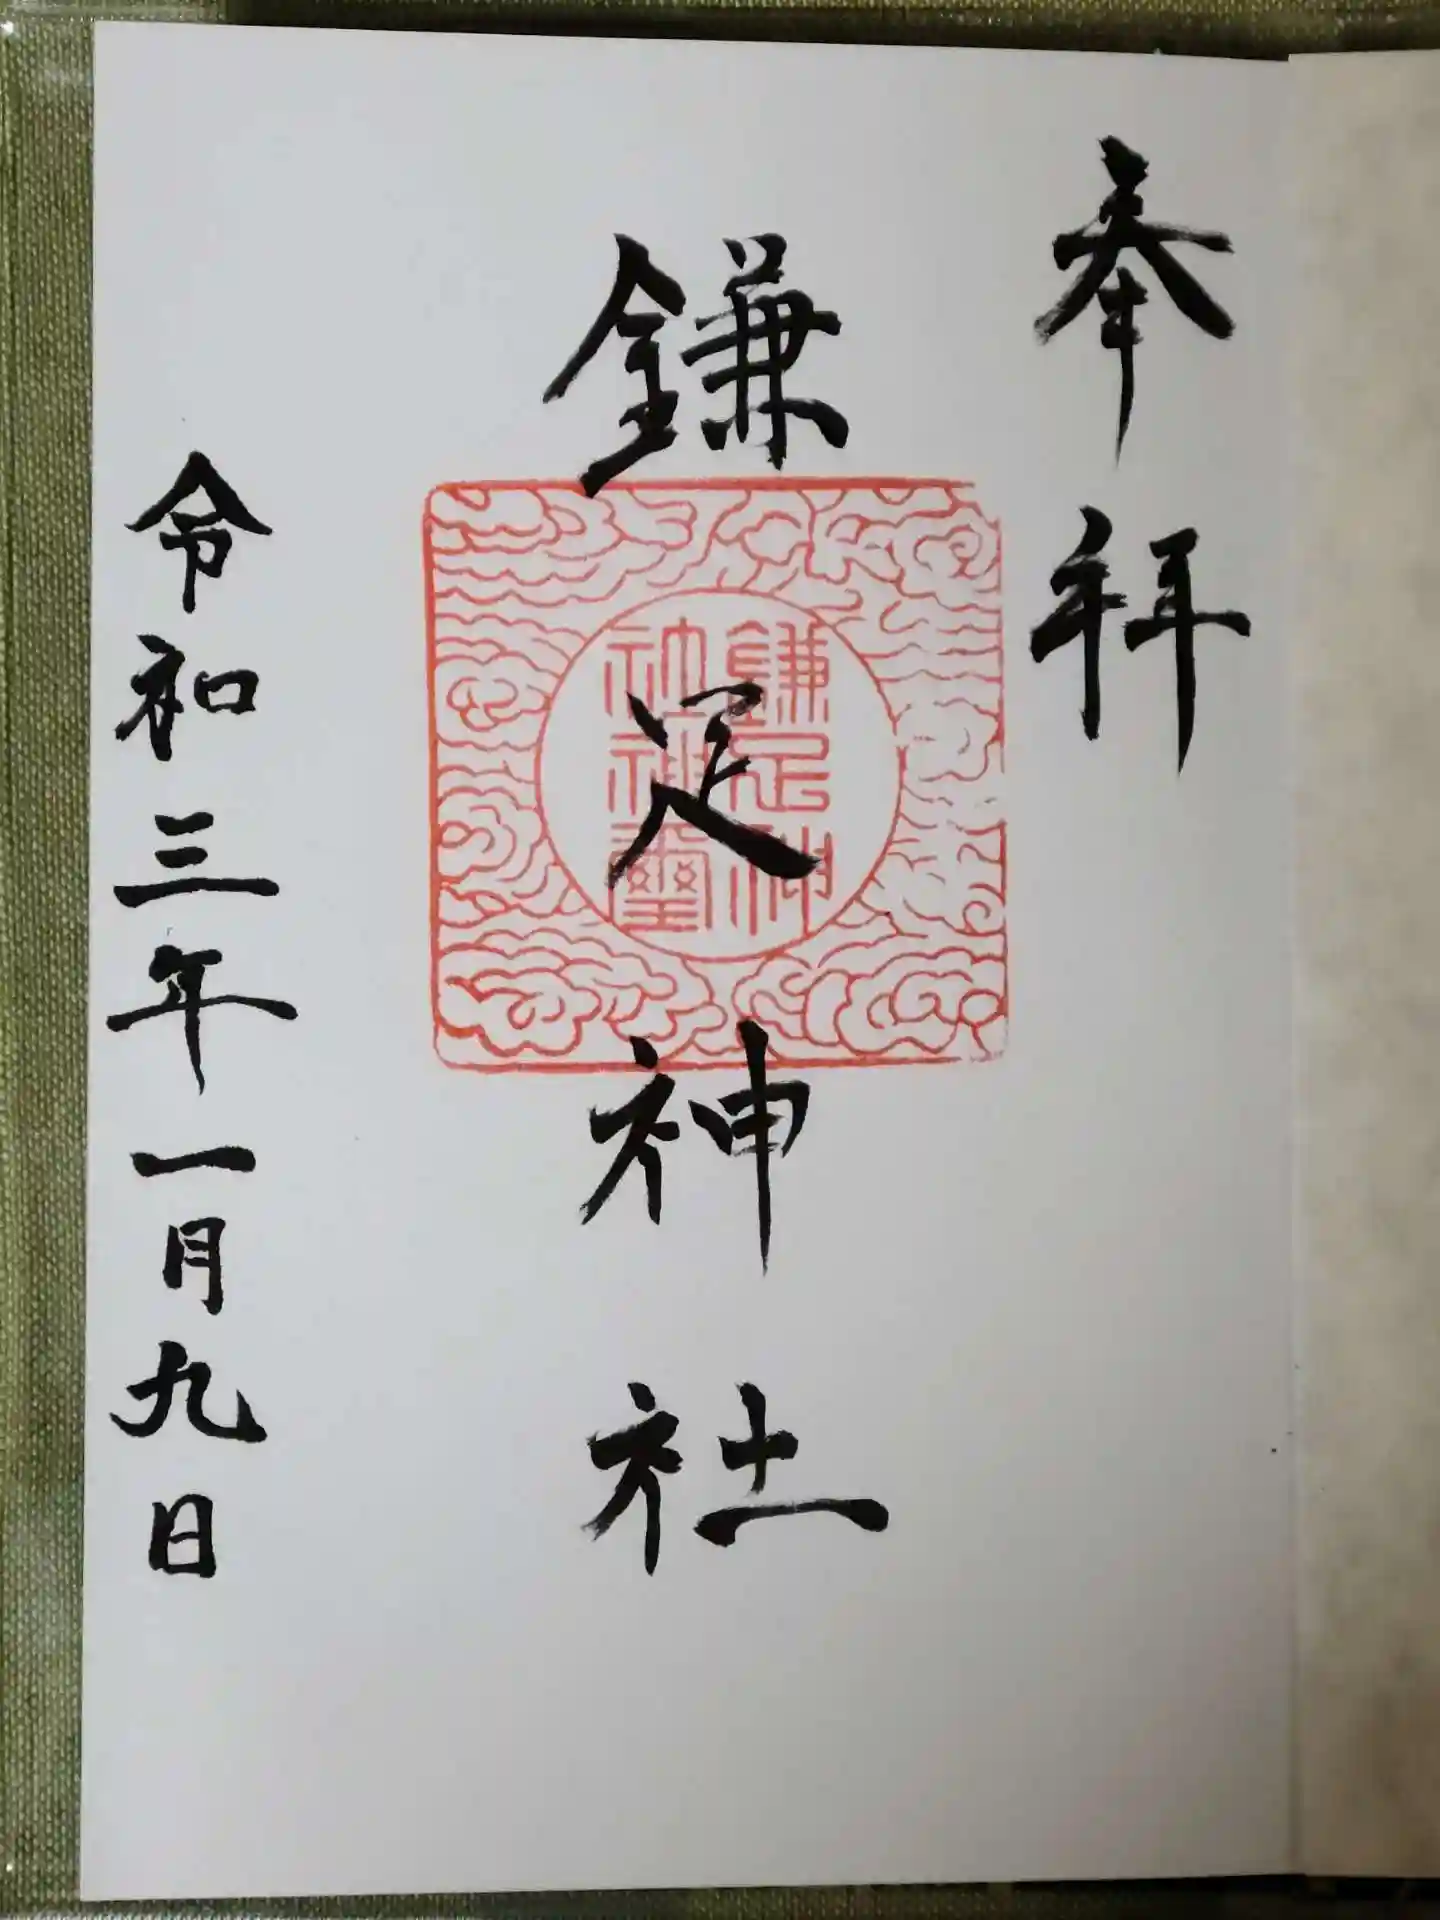 奉拝
鎌足神社
鎌足神
社神璽
令和三年一月九日